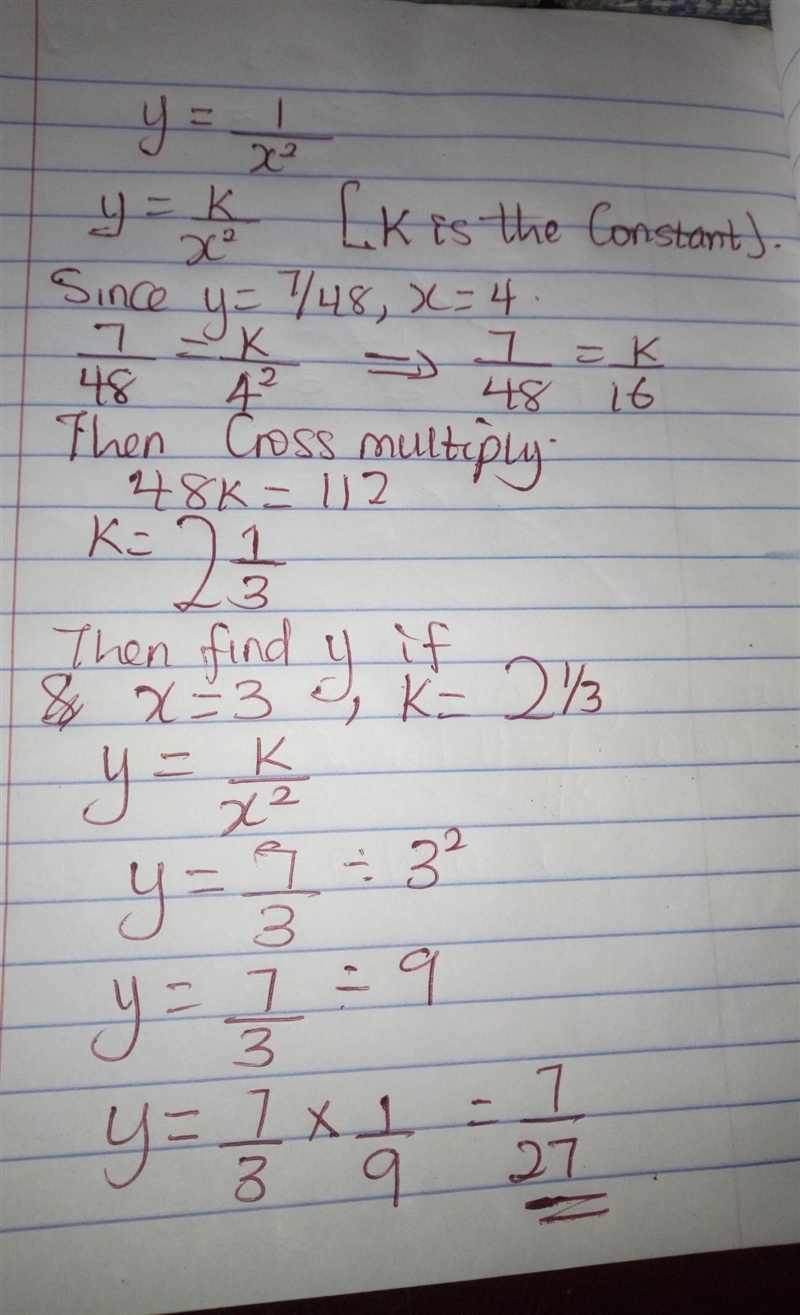 y = 1/x²
y = K/x² [K is the Constant].
Since y = 7/48, x = 4.
7/48 = K/4² ⇒ 7/48 = K/16
Then Cross multiply.
48K = 112
K = 2 1/3
Then find y if
x = 3, K = 2 1/3
y = K/x²
y = 7/3 ÷ 3²
y = 7/3 ÷ 9
y = 7/3 × 1/9 = 7/27